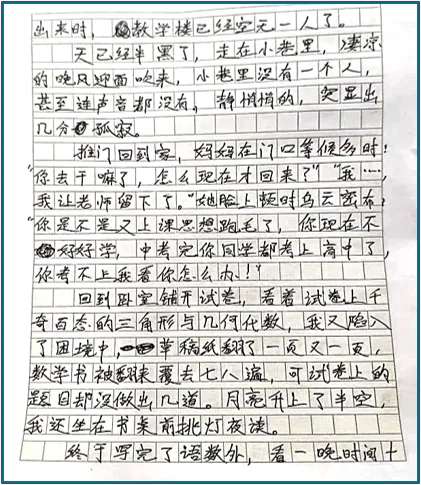 出来时，教学楼已经空无一人了。
天已经半黑了，走在小巷里，凄凉
的晚风迎面吹来，小巷里没有一个人，
甚至连声音都没有，静悄悄的，突显出
几分孤寂。
推门回到家，妈妈在门口等候多时！
“你去干嘛了，怎么现在才回来了”“我…，
我让老师留下了。”她脸上顿时乌云密布，
“你是不是又上课思想跑毛了，你现在不
好好学，中考完你同学都考上高中了，
你考不上我看你怎么办！”
回到卧室铺开试卷，看着试卷上千
奇百态的三角形与几何代数，我又陷入
了困境中，草稿纸翻了一页又一页，
数学书被翻来覆去七八遍，可试卷上的
题目却没做出几道。月亮升上了半空，
我还坐在书桌前挑灯夜读。
终于写完了语数外，看一晚时间十